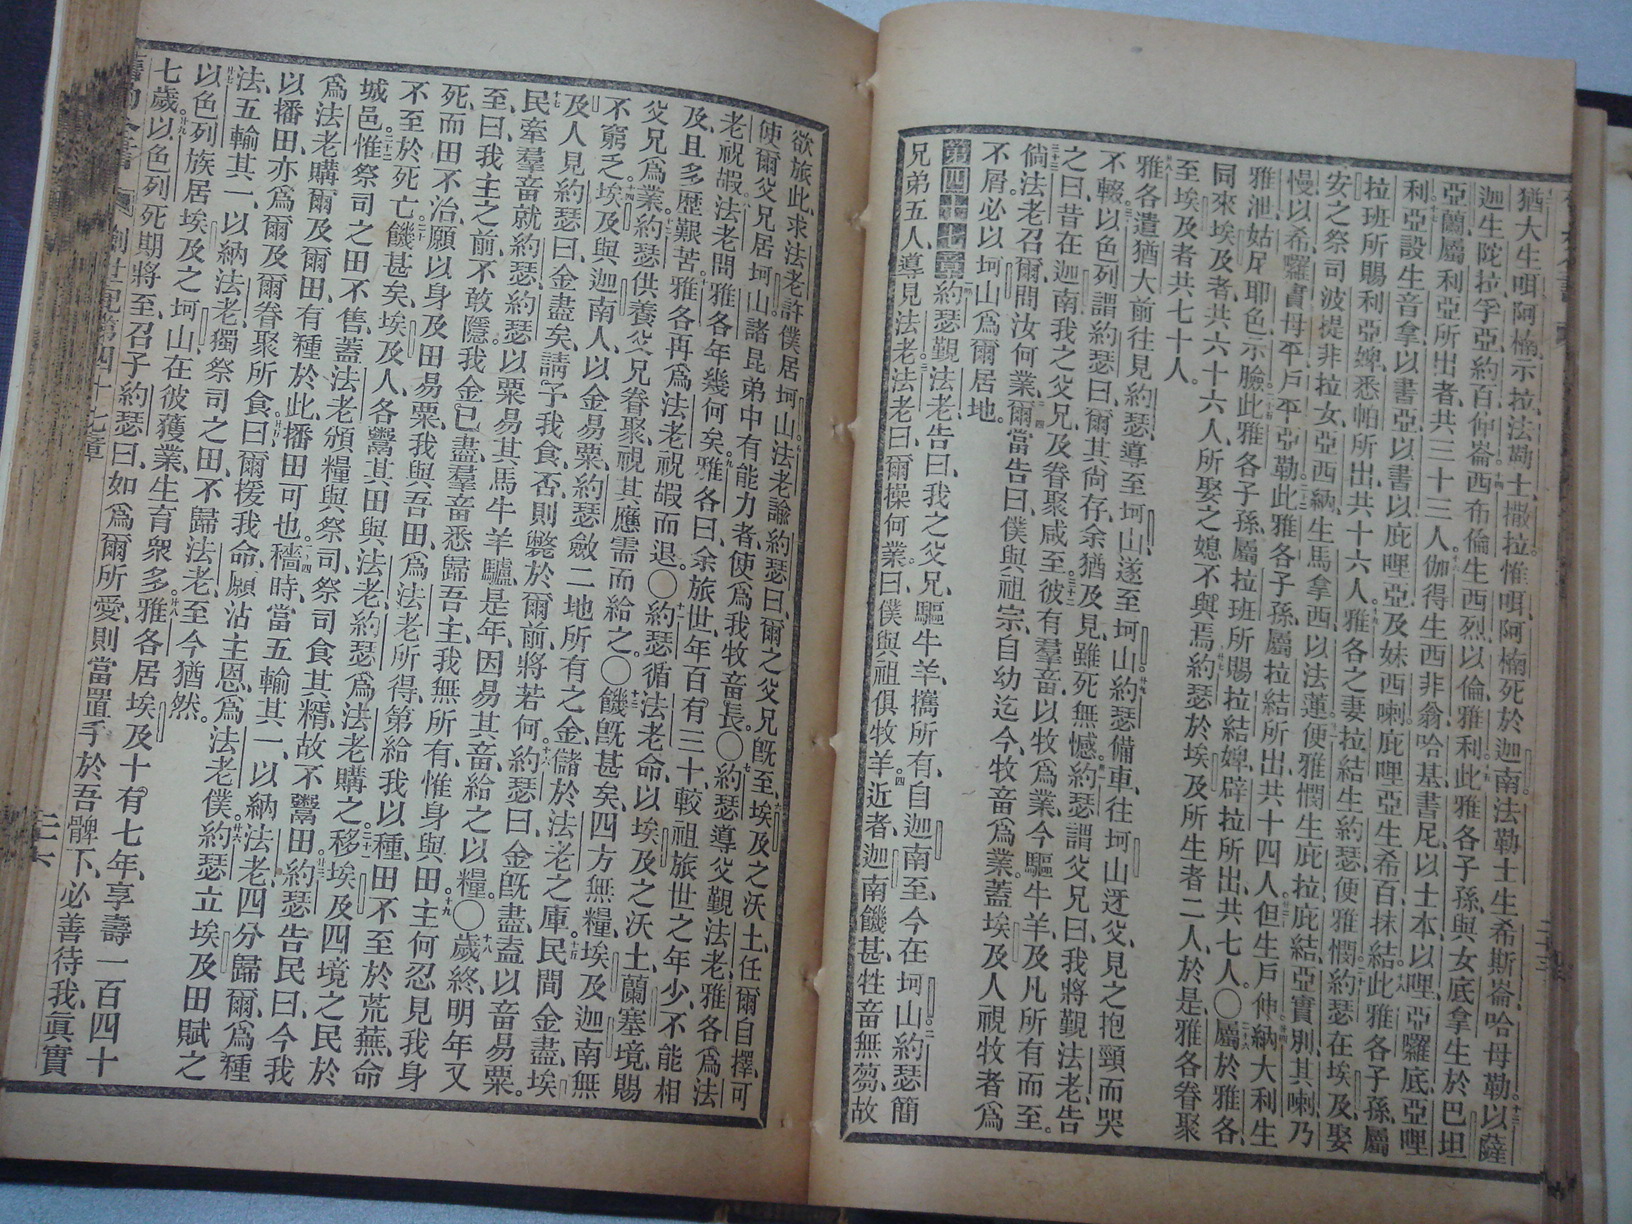 猶大生咡阿楠示拉法勒士撒拉惟咡阿楠死於迦南法勒士生希斯崙哈母勒以薩
迦生陀拉孚亞約百伸崙西布倫生西烈以倫雅利此雅各子孫與女底拿生於巴坦
亞蘭屬利亞所出者共三十三人伽得生西非翁哈基書尼以士本以哩亞囉底亞哩
利亞設生音拿以書亞以書以庇哩亞及妹西喇庇哩亞生希百抹結此雅各子孫屬
拉班所賜利亞婢悉帕所出共十六人雅各之妻拉結生約瑟便雅憫約瑟在埃及娶
安之祭司波提非拉女亞西納生馬拿西以法蓮便雅憫生庇拉庇結亞實別其喇乃
慢以希囉書母平戶平亞勒此雅各子孫屬拉結所出共十四人但生戶伸納大利生
雅泄姑尼耶色示臉此雅各子孫屬拉班所賜拉結婢辟拉所出共七人○屬於雅各
同來埃及者共六十六人所娶之媳不與焉約瑟於埃及所生者二人於是雅各眷聚
至埃及者共七十人
雅各遣猶大前往見約瑟導至坷山遂至坷山約瑟備車往坷山迓父見之抱頸而哭
不輟以色列謂約瑟曰爾其尚存余猶及見雖死無憾約瑟謂父兄曰我將覲法老告
之曰昔在迦南我之父兄及眷聚咸至彼有羣畜以牧爲業今驅牛羊及凡所有而至
倘法老召爾問汝何業爾當告曰僕與祖宗自幼迄今牧畜爲業蓋埃及人視牧者爲
不屑必以坷山爲爾居地
第四十七章約瑟覲法老告曰我之父兄驅牛羊攜所有自迦南至今在坷山約瑟簡
兄弟五人導見法老法老曰爾操何業曰僕與祖俱牧羊近者迦南饑甚牲畜無芻故
欲旅此求法老許僕居坷山法老諭約瑟曰爾之父兄旣至埃及之沃土任爾自擇可
使爾父兄居坷山諸昆弟中有能力者使爲我牧畜長○約瑟導父覲法老雅各爲法
老祝嘏法老問雅各年幾何矣雅各曰余旅世年百有三十較祖旅世之年少不能相
及且多歷艱苦雅各再爲法老祝嘏而退○約瑟循法老命以埃及之沃土蘭塞境賜
父兄爲業約瑟供養父兄眷聚視其應需而給之○饑旣甚矣四方無糧埃及迦南無
不窮乏埃及與迦南人以金易粟約瑟斂二地所有之金儲於法老之庫民間金盡埃
及人見約瑟曰金盡矣請予我食否則斃於爾前將若何約瑟曰金旣盡盍以畜易粟
民牽羣畜就約瑟約瑟以粟易其馬牛羊驢是年因易其畜給之以糧○歲終明年又
至曰我主之前不敢隱我金已盡羣畜悉歸吾主我無所有惟身與田主何忍見我身
死而田不治願以身及田易粟我與吾田爲法老所得第給我以種田不至於荒蕪命
不至於死亡饑甚矣埃及人各鬻其田與法老約瑟爲法老購之移埃及四境之民於
城邑惟祭司之田不售蓋法老頒糧與祭司祭司食其糈故不鬻田約瑟告民曰今我
爲法老購爾及爾田有種於此播田可也穡時當五輸其一以納法老四分歸爾爲種
以播田亦爲爾及爾眷聚所食曰爾援我命願沾主恩爲法老僕約瑟立埃及田賦之
法五輸其一以納法老獨祭司之田不歸法老至今猶然
以色列族居埃及之坷山在彼獲業生育衆多雅各居埃及十有七年享壽一百四十
七歲以色列死期將至召子約瑟曰如爲爾所愛則當置手於吾髀下必善待我眞實
創世記第四十七章 二十六